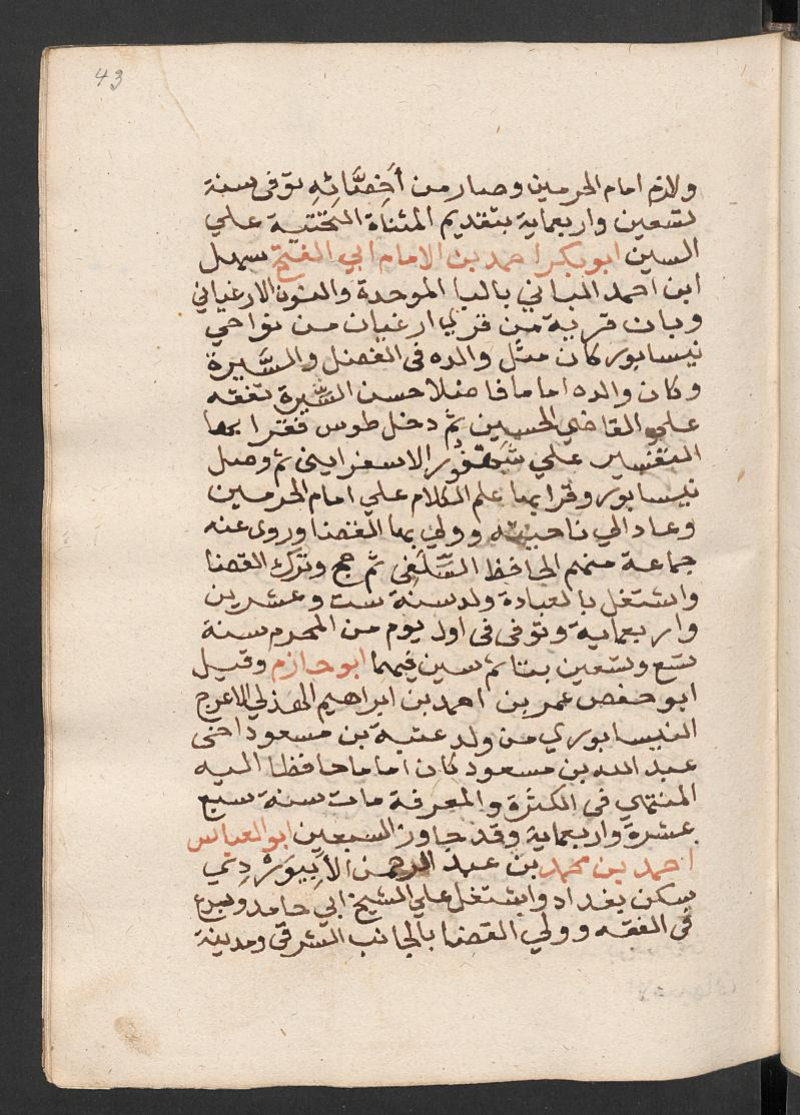 43
ولازم امام الحرمين وصار من أَخِصَّائِهِ توفى سنة
تسعين واربعماية بتقديم المثناة التحتية علي
السين ابو بكر احمد بن الامام ابي الفتح سهل
ابن احمد الباني بالبا الموحدة والنون الارغياني
وبان قرية من قري ارغيان من نواحي
نيسابور كان مثل والده فى الفضل والسَّيرة
وكان والده اماما فاضلا حسن السِّيرة تفقه
علي القاضي الحسين ثم دخل طوس فقرا بها
التفسير علي شَهْفُور الاسفراينى ثم وصل
نيسابور وقرا بها علم الكلام علي امام الحرمين
وعاد الي ناحيته وولي بها القضا وروى عنه
جماعة منهم الحافظ السِّلَفِى ثم حج وترك القضا
واشتغل بالعبادة ولد سنة ست وعشرين
واربعماية وتوفى فى اول يوم من المحرم سنة
تسع وتسعين بتا ثم سين فيهما ابو حازم وقيل
ابو حفص عمر بن احمد بن ابراهيم الهذلي الاعرج
النيسابوري من ولد عتبة بن مسعود اخى
عبد الله بن مسعود كان اماما حافظا اليه
المنتهي فى الكثرة والمعرفة مات سنة سبع
عشرة واربعماية وقد جاوز السبعين ابو العباس
احمد بن محمد بن عبد الرحمن الأَبِيوَرْدِي
سكن بغداد واشتغل علي الشيخ ابي حامد وبرع
فى الفقه وولي القضا بالجانب الشرقى ومدينة